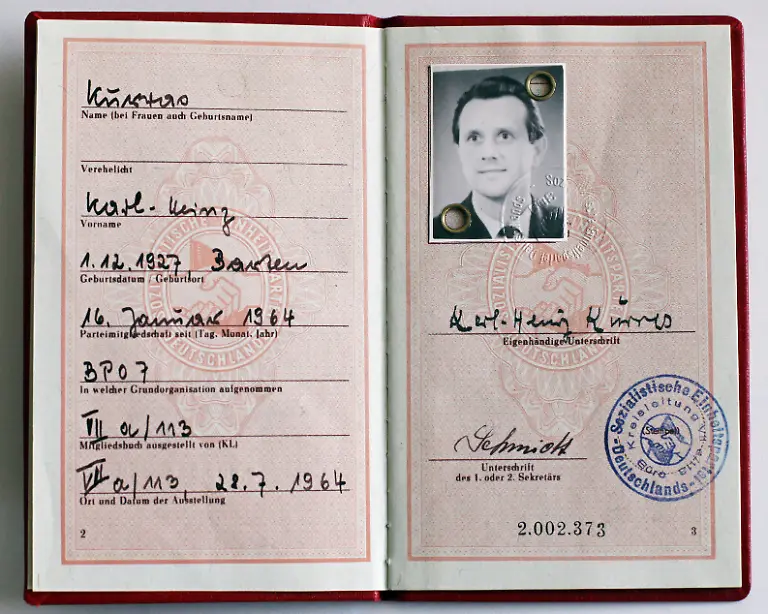 Kurras
Name (bei Frauen auch Geburtsname)
Verehelicht
Karl-Heinz
Vorname
1.12.1927, Barten
Geburtsdatum / Geburtsort
16. Januar 1964
Parteimitgliedschaft seit (Tag, Monat, Jahr)
BPO 7
In welcher Grundorganisation aufgenommen
VII a/113
Mitgliedsbuch ausgestellt von (KL)
VII a/113, 28.7.1964
Ort und Datum der Ausstellung
2
SOZIALISTISCHE EINHEITSPARTEI DEUTSCHLANDS
Karl-Heinz Kurras
Eigenhändige Unterschrift
Schmidt
Unterschrift
des 1. oder 2. Sekretärs
Sozialistische Einheitspartei
Deutschlands
Kreisleitung
Büro
2.002.373
3